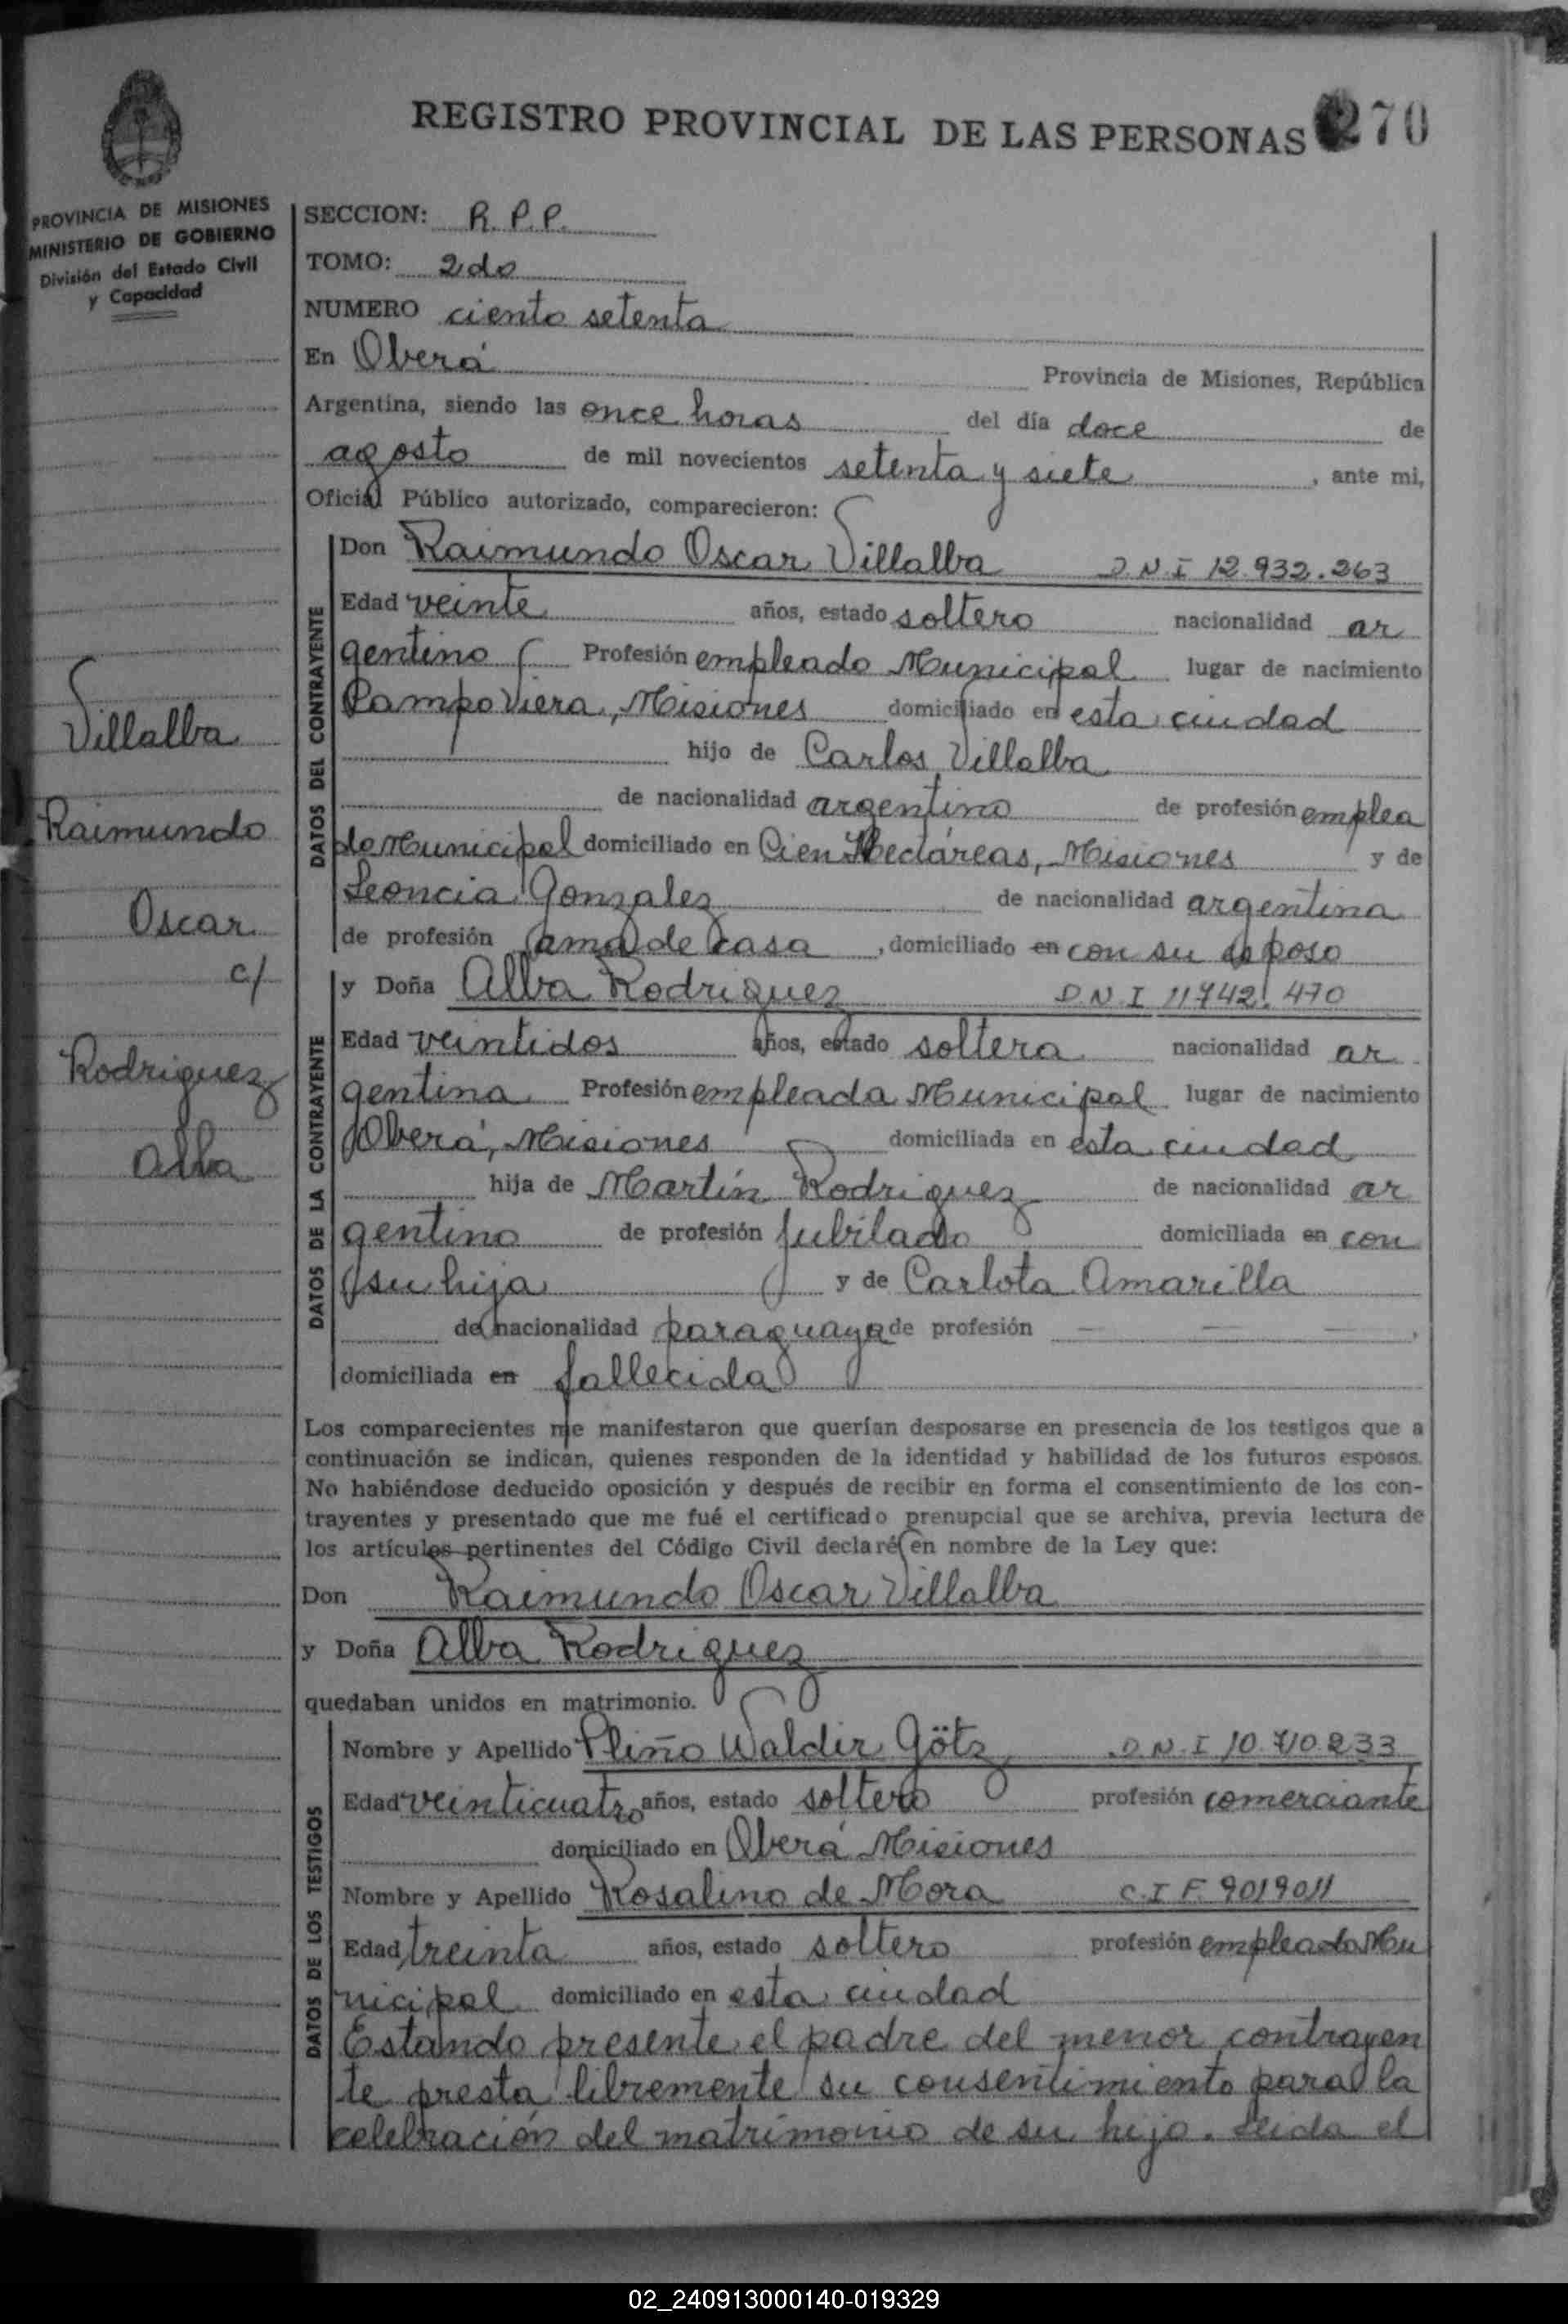 REGISTRO PROVINCIAL DE LAS PERSONAS 270
PROVINCIA DE MISIONES
MINISTERIO DE GOBIERNO
División del Estado Civil
y Capacidad
Villalba
Raimundo
Oscar
c/
Rodriguez
Alba
SECCION: R.P.P.
TOMO: 2do
NUMERO ciento setenta
En Oberá Provincia de Misiones, República
Argentina, siendo las once horas del día doce de
agosto de mil novecientos setenta y siete, ante mi,
Oficial Público autorizado, comparecieron:
DATOS DEL CONTRAYENTE
Don Raimundo Oscar Villalba D.N.I 12.932.263
Edad veinte años, estado soltero nacionalidad ar
gentino Profesión empleado Municipal lugar de nacimiento
Campo Viera, Misiones domiciliado en esta ciudad
hijo de Carlos Villalba
de nacionalidad argentino de profesión emplea
do Municipal domiciliado en Cien Hectáreas, Misiones y de
Leoncia Gonzalez de nacionalidad argentina
de profesión ama de casa, domiciliado en con su esposo
DATOS DE LA CONTRAYENTE
y Doña Alba Rodriguez D.N.I 11742.470
Edad veintidos años, estado soltera nacionalidad ar
gentina Profesión empleada Municipal lugar de nacimiento
Oberá, Misiones domiciliada en esta ciudad
hija de Martín Rodriguez de nacionalidad ar
gentino de profesión Jubilado domiciliada en con
su hija y de Carlota Amarilla
de nacionalidad paraguaya de profesión — — —,
domiciliada en fallecida
Los comparecientes me manifestaron que querían desposarse en presencia de los testigos que a
continuación se indican, quienes responden de la identidad y habilidad de los futuros esposos.
No habiéndose deducido oposición y después de recibir en forma el consentimiento de los con-
trayentes y presentado que me fué el certificado prenupcial que se archiva, previa lectura de
los artículos pertinentes del Código Civil declaré en nombre de la Ley que:
Don Raimundo Oscar Villalba
y Doña Alba Rodriguez
quedaban unidos en matrimonio.
DATOS DE LOS TESTIGOS
Nombre y Apellido Pliño Waldir Götz D.N.I 10.710.233
Edad veinticuatro años, estado soltero profesión comerciante
domiciliado en Oberá Misiones
Nombre y Apellido Rosalino de Mora C.I F. 9019011
Edad treinta años, estado soltero profesión empleado Mu
nicipal domiciliado en esta ciudad
Estando presente el padre del menor contrayen
te presta libremente su consentimiento para la
celebración del matrimonio de su hijo. Leida el
02_240913000140-019329